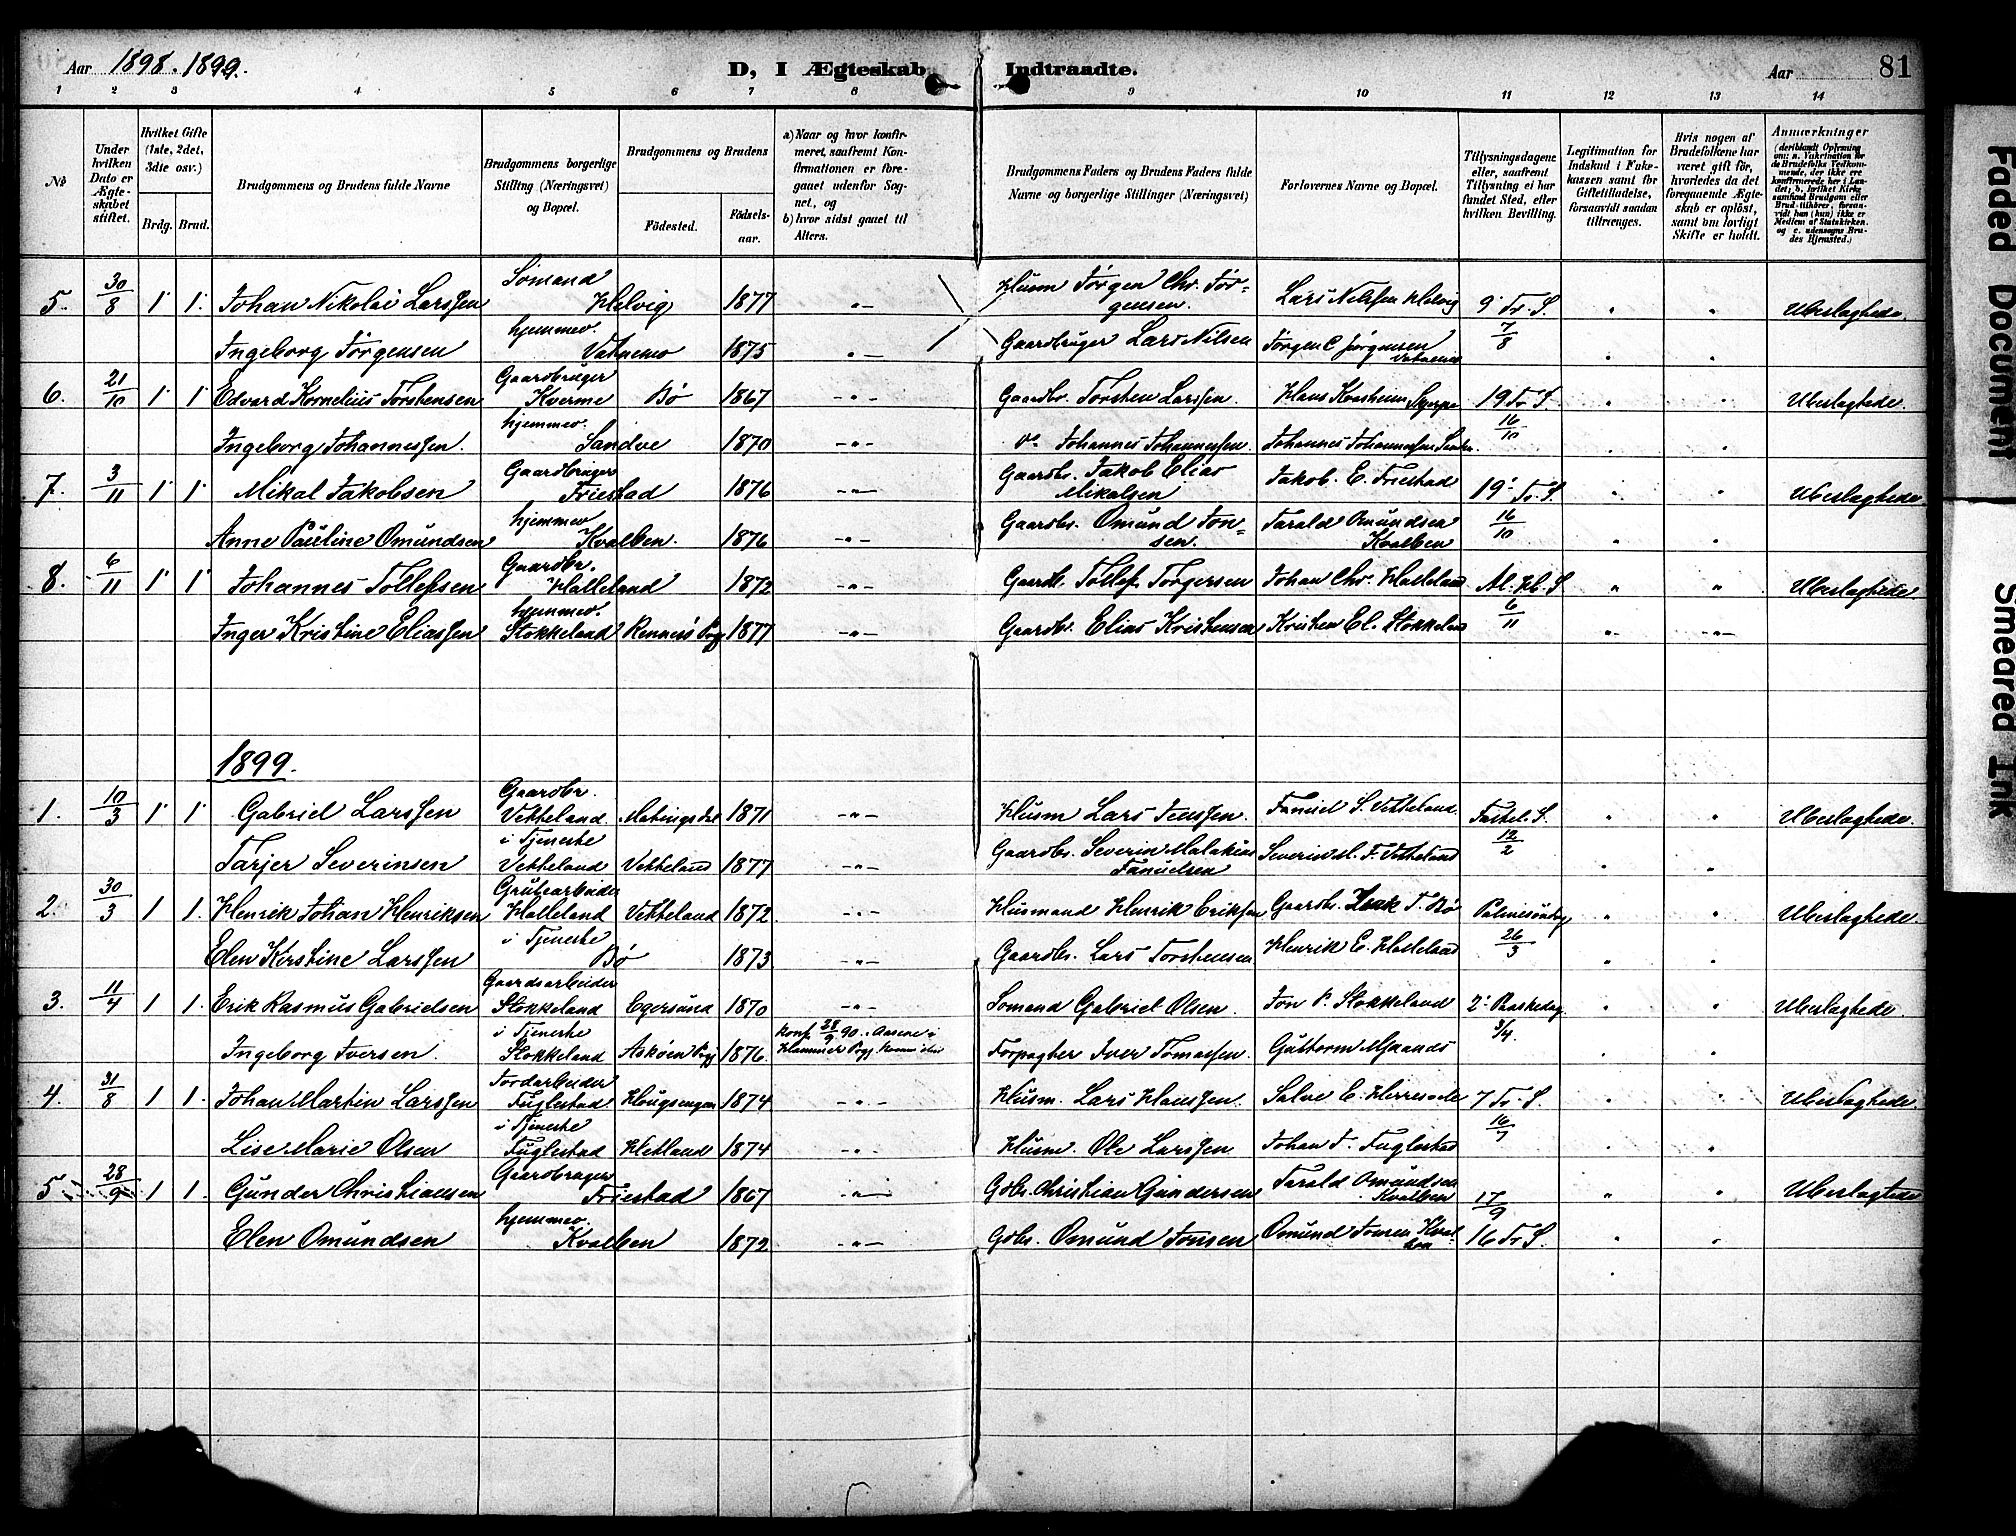 Aar 1898. 1899.
D, I Ægteskab Indtraadte.
Aar
81
1 2 3 4 5 6 7 8 9 10 11 12 13 14
№
Under hvilken Dato er Ægteskabet stiftet.
Hvilket Gifte (1ste, 2det, 3die osv.)
Brdg. Brud.
Brudgommens og Brudens fulde Navne
Brudgommens borgerlige Stilling (Næringsvei) og Bopæl.
Brudgommens og Brudens
Fødested.
Fødselsaar.
a) Naar og hvor konfirmeret, saafremt Konfirmationen er foregaaet udenfor Sognet, og
b) hvor sidst gaaet til Alters.
Brudgommens Faders og Brudens Faders fulde Navne og borgerlige Stillinger (Næringsvei)
Forlovernes Navne og Bopæl.
Tillysningsdagene eller, saafremt Tillysning ei har fundet Sted, efter hvilken Bevilling.
Legitimation for Indskud i Enkekassen samt for Giftetilladelse, forsaavidt saadan tiltrænges.
Hvis nogen af Brudefolkene har været gift før, hvorledes da det foregaaende Ægteskab er opløst, samt om lovligt Skifte er holdt.
Anmærkninger (deriblandt Oplysning om: a. Vakcination for de Brudefolks Vedkommende, der ikke ere konfirmerede her i Landet; b. hvilket Kirkesamfund Brudgom eller Brud tilhører, forsaavidt han (hun) ikke er Medlem af Statskirken, og c. udensogns Brudes Hjemsted.)
5. 30/8 1 1. Johan Nikolai Larssen Sømand Helvig 1877 -"- Husm Jørgen Chr. Jørgensen. Lars Nilssen Helvig 9 Tr. S. 7/8 " " Ubeslægtede.
Ingeborg Jørgensen hjemmev. Vatnemo 1875 -"- Gaardbruger Lars Nilsen Jørgen C Jørgensen Vatnemo " "
6. 21/10 1 1 Edvard Kornelius Torstensen Gaardbruger Kverme Bø 1867 -"- Gaardbr. Torsten Larssen. Hans Kvasheim 19 Tr. S. 16/10 " " Ubeslægtede.
Ingeborg Johannessen. hjemmev. Sandve 1870 -"- Do Johannes Johannessen. Johannes Johannessen Sandve " "
7. 3/11 1 1 Mikal Jakobsen Gaardbruger Friestad 1876 -"- Gaardbr. Jakob Elias Mikalsen Jakob. E. Friestad 19 Tr. S. 16/10 " " Ubeslægtede
Anne Pauline Omundsen hjemmev Kvalben. 1876 -"- Gaardbr. Omund Jonsen. Tarald Omundsen Kvalben " "
8. 6/11 1 1 Johannes Tollefsen Gaardbr. Halleland 1872 -"- Gaardb. Tollef Torgersen Johan Chr. Halleland Al. H. S 6/11 " " Ubeslægtede.
Inger Kristine Eliassen hjemmev. Stokkeland Rennesø Prgj 1877 -"- Gaardbr. Elias Kristensen Kristen El. Stokkeland " -"-
1899.
1. 10/3 1 1 Gabriel Larssen Gaardbr. Vetteland Matingsdal 1871 -"- Husm Lars Jenssen. Fanuel S. Vetteland Fastel. S. 12/2 " " Ubeslægtede.
Tarjer Severinsen i Tjeneste Vetteland Vetteland 1877 -"- Gaardbr. Severin Malakias Fanuelsen Severin M. F. Vetteland " "
2. 30/3 1 1. Henrik Johan Henriksen Grubearbeider Halleland Vetteland 1872 -"- Husmand Henrik Eriksen Gaardbr. Isak T. Bø Palmesøndag 26/3 " " Ubeslægtede.
Elen Kirstine Larssen i Tjeneste Bø 1873 -"- Gaardbr. Lars Torstensen Henrik E. Halleland " "
3. 11/4 1 1. Erik Rasmus Gabrielsen Gaardsarbeider Stokkeland Egersund 1870 -"- Sømand Gabriel Olsen. Jon P. Stokkeland 2. Paaskedag 3/4. " " Ubeslægtede.
Ingeborg Iversen. i Tjeneste Stokkeland Askøen Prgj 1876. Konf. 28/9 90. i Aasene i Hammer Prgj. Forpagter Iver Tomassen. Guttorm Maands " "
4. 31/8 1 1. Johan Martin Larssen Jordarbeider Fuglestad Haugsengen 1874 -"- Husm. Lars Hanssen. Salve E. Herresvele 7 Tr. S. 16/7 " " Ubeslægtede.
Lise Marie Olsen i Tjeneste Fuglestad Hetland 1874 -"- Husm. Ole Larssen Johan T. Fuglestad " "
5 28/9 1 1. Gunder Christiansen Gaardbruger Friestad 1867 -"- Gdbr. Christian Gundersen Tarald Omundsen Kvalben 17/9 " " Ubeslægtede
Elen Omundsen hjemmev. Kvalben 1872 -"- Gdbr. Omund Jonsen Omund Jonsen Kvalben 16 Tr S. " "
Faded Document
Smeared Ink